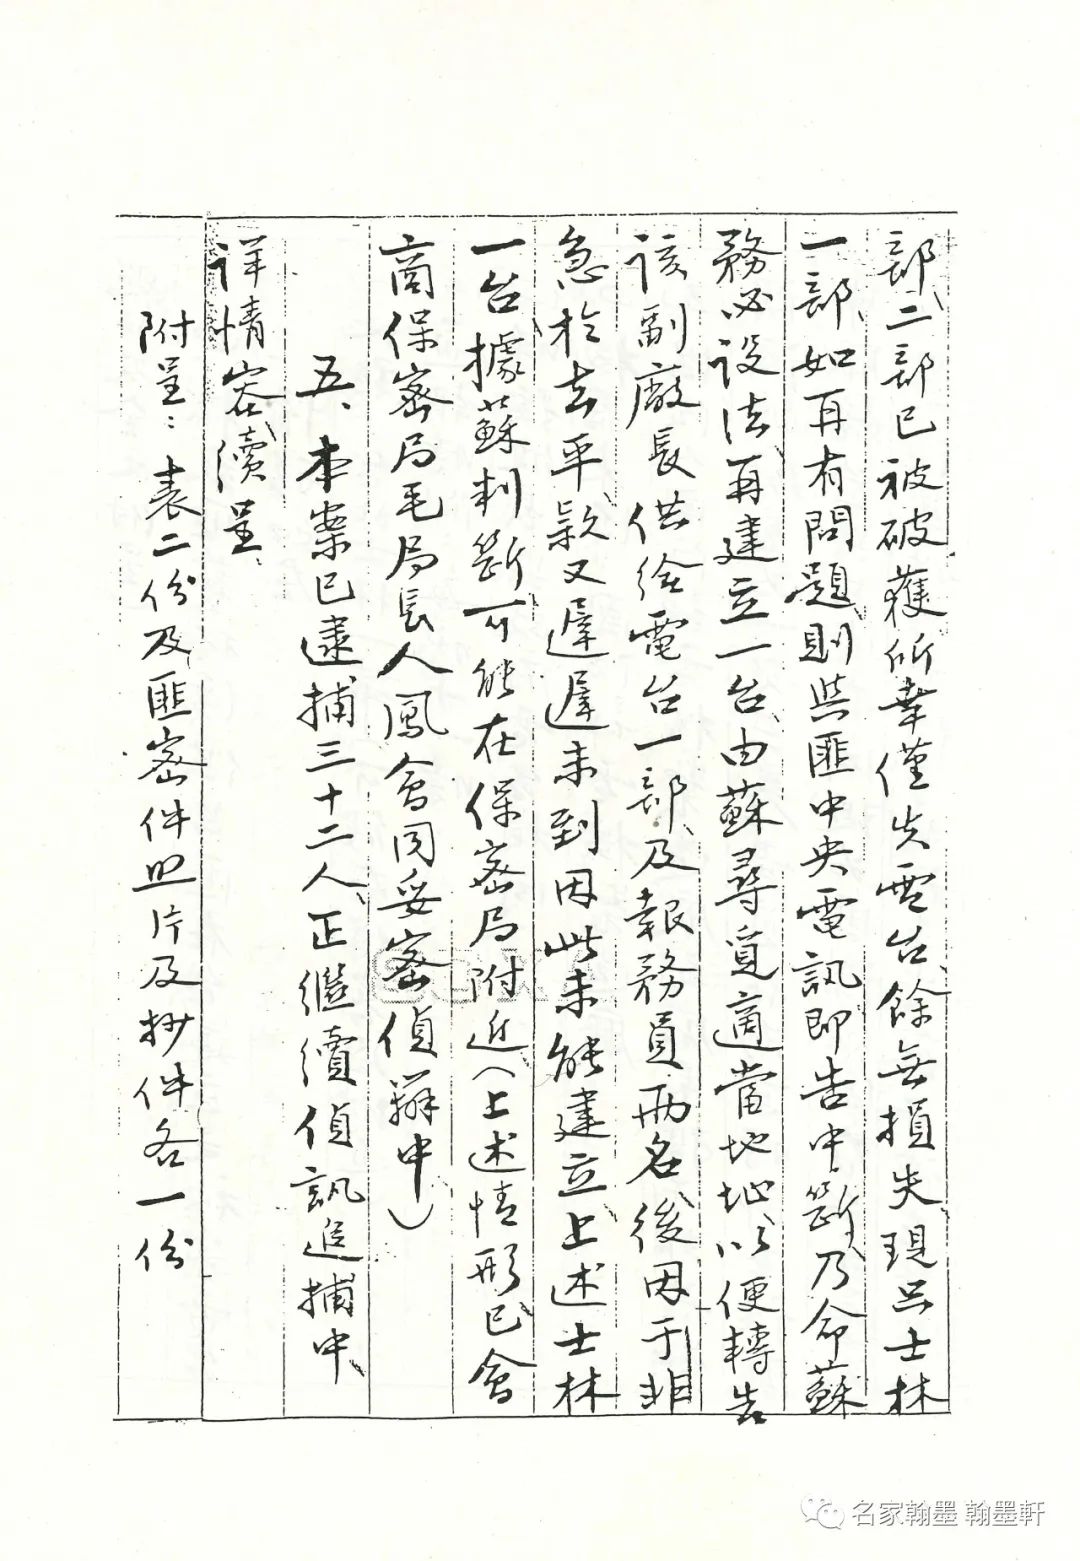 部、二部已被破獲所幸僅失電台餘無損失現只士林
一部、如再有問題、則與匪中央電訊即告中斷、乃命蘇
務必設法再建立一台、由蘇尋覓適當地址、以便轉告
該副廠長供給電台一部、及報務員兩名後因于非
急於去平、款又遲遲未到因此未能建立上述士林
一台、據蘇判斷可能在保密局附近、(上述情形已會
商保密局毛局長人鳳會同妥密偵辦中)
五、本案已逮捕三十二人、正繼續偵訊追捕中、
詳情容續呈、
附呈:表二份及匪密件照片及抄件各一份
名家翰墨 翰墨軒